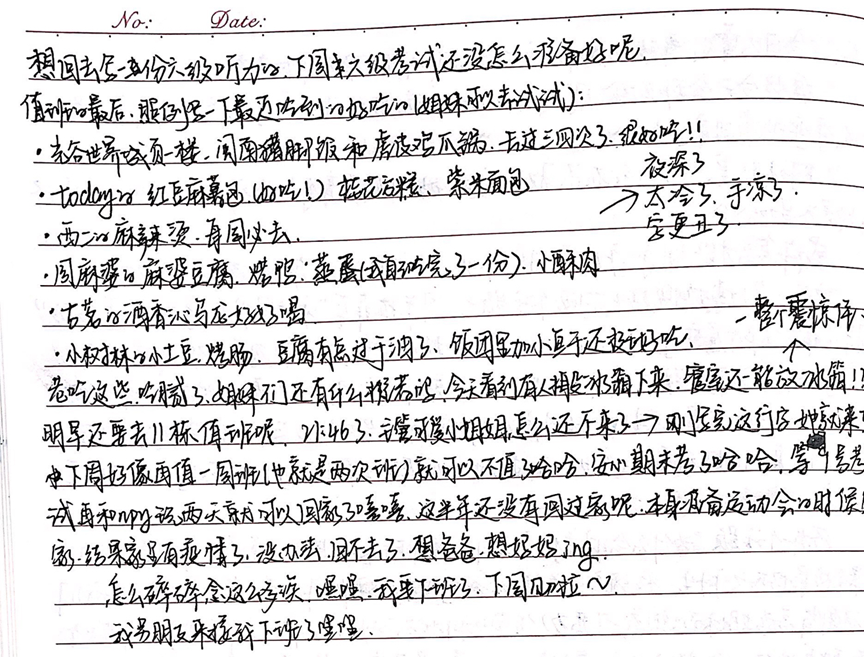 No: Date:
想回去写一套份六级听力的，下周末六级考试还没怎么准备好呢，
值班的最后，照例写一下最近吃到的好吃的(姐妹可以去试试)：
·光谷世界城负一楼，闽南猪脚饭和虎皮鸡爪锅，去过三四次了，很好吃!!
·today的红豆麻薯包(好吃!) 桂花方糕、紫米面包
夜深了
→太冷了，手凉了，
字更丑了
·西二的麻辣烫，每周必去，
·周麻婆的麻婆豆腐、烤鸭、蒸蛋(我自己吃完了一份)、小酥肉
·古茗的酒香沁乌龙太好喝
·小树林的小土豆、烤肠，豆腐有点过于油了，饭团里加小鱼干还挺好吃，
一整个震惊住
↑
老吃这些，吃腻了，姐妹们还有什么推荐的，今天看到有人搬冰箱下来，寝室还能放冰箱!!
明早还要去11栋值班呢，21:46了，我可爱小姐姐怎么还不来了→刚写完这行字她就来
下周好像再值一周班(也就是两次班)就可以不值了哈哈，安心期末考了哈哈，等 号考
试再和npy玩两天就可以回家了嘻嘻，这半年还没有回过家呢，本身准备运动会的时候回
家，结果家里有疫情了，没办法，回不去了，想爸爸，想妈妈ing，
怎么碎碎念这么多诶，嘿嘿，我要下班了，下周见啦～
我男朋友来接我下班了嘿嘿.